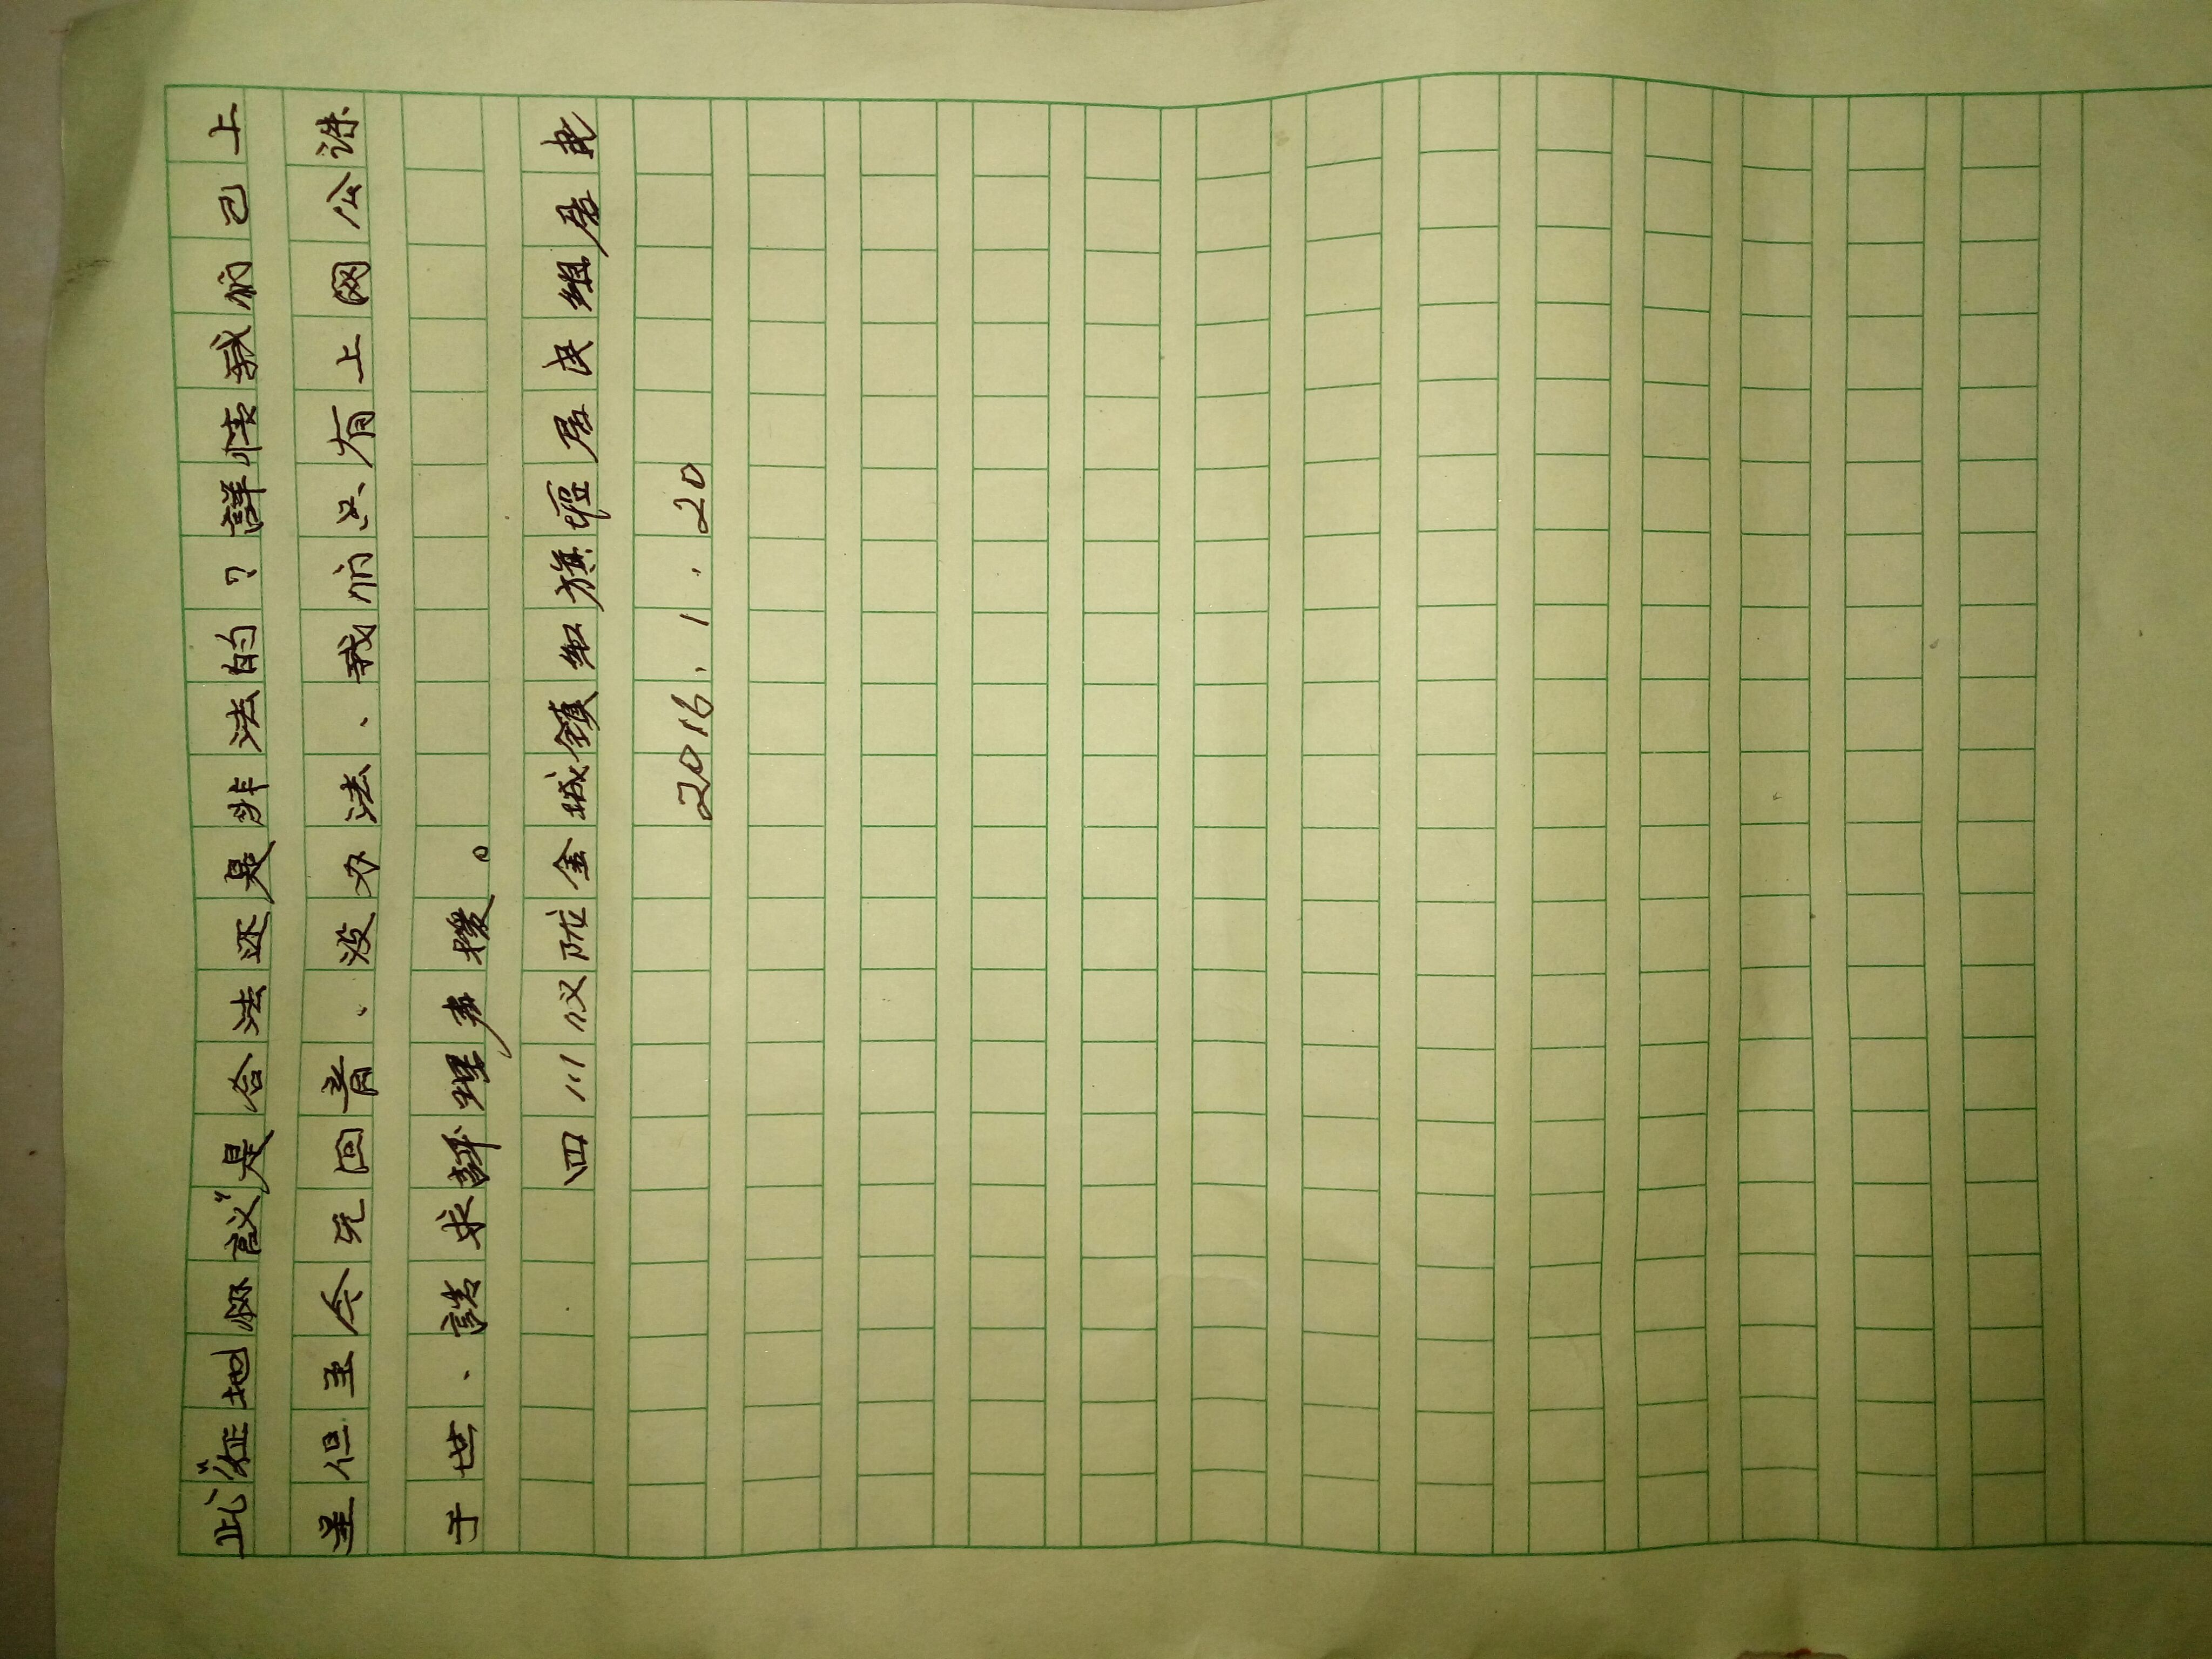 此、"征地协议"是合法还是非法的?詳情我们已上
呈但至今无回音、没办法、我们只有上网公诛
于世、請求評理声援。
四川仪陇金城鎮红旗區居民组居民
2016.1.20